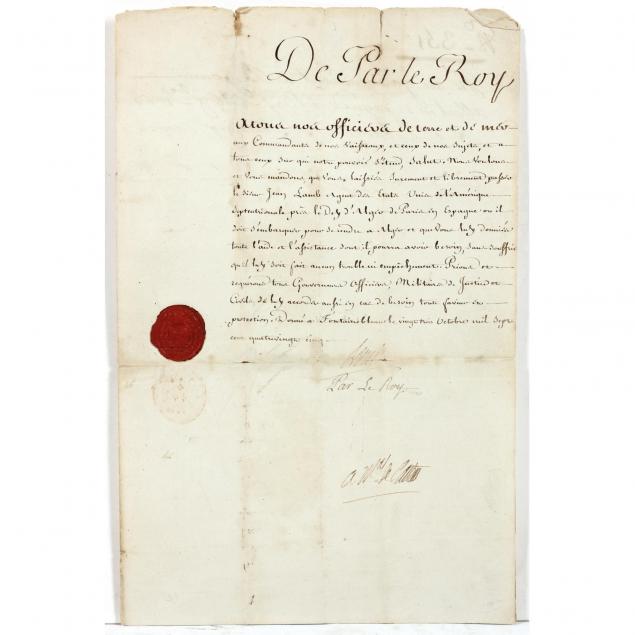 De Par le Roy
A tous nos officiers de terre et de mer
aux Commandants de nos Vaisseaux, et ceux de nos Sujets, et a
tous ceux sur qui notre pouvoir s'étend, Salut. Nous voulons
et Vous mandons que Vous laissiés surement et librement passer
le sieur Jean Lamb Agent des Etats Unis de l'Amérique
Septentrionale près le Dey d'Alger de Paris en Espagne ou il
doit s'embarquer pour se rendre a Alger et que Vous luy donniés
toute l'aide et l'assistance dont il pourra avoir besoin, sans souffrir
qu'il luy soit fait aucun trouble ni empêchement. Prions et
requérons tous Gouverneurs Officiers, Militaires de Justice et
Civils, de luy accorder aussi en cas de besoin toute faveur et
protection. Donné a Fontainebleau le vingt Octobre mil sept
cent quatrevingt cinq.
Louis
Par Le Roy